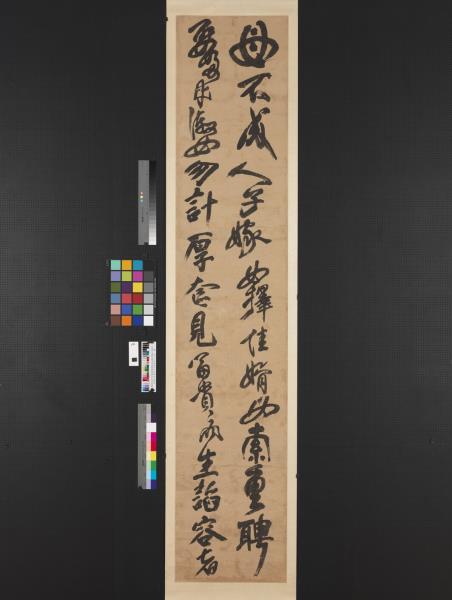 母不成人子嫁女擇佳婿毋索重聘
娶媳求淑女勿計厚奩見富貴而生諂容者